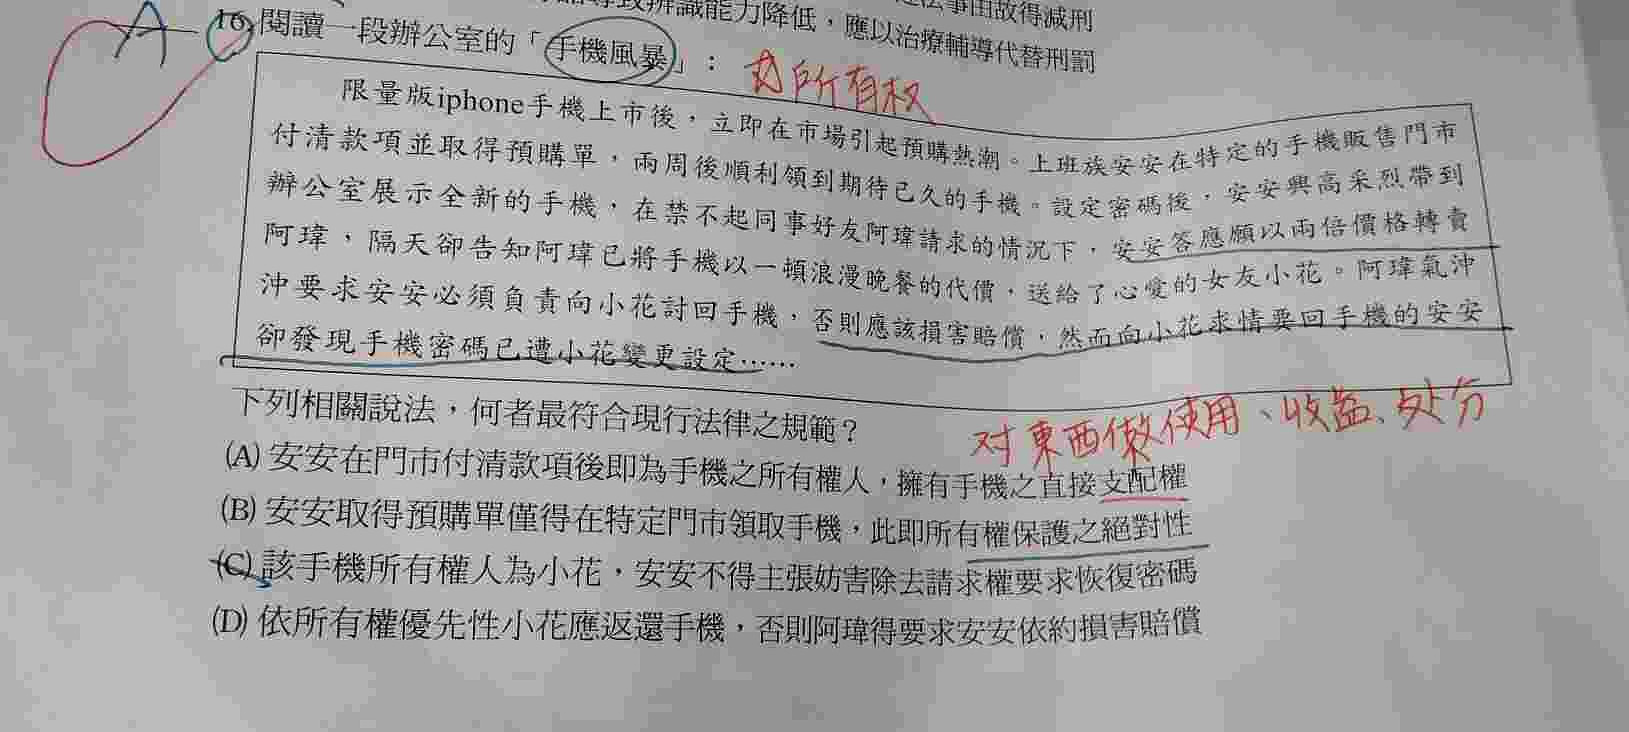 辨識能力降低，應以治療輔導代替刑罰
事由故得減刑
A
16.閱讀一段辦公室的「手機風暴」：
為所有权
限量版iphone手機上市後，立即在市場引起預購熱潮。上班族安安在特定的手機販售門市
付清款項並取得預購單，兩周後順利領到期待已久的手機。設定密碼後，安安興高采烈帶到
辦公室展示全新的手機，在禁不起同事好友阿瑋請求的情況下，安安答應願以兩倍價格轉賣
阿瑋，隔天卻告知阿瑋已將手機以一頓浪漫晚餐的代價，送給了心愛的女友小花。阿瑋氣沖
沖要求安安必須負責向小花討回手機，否則應該損害賠償，然而向小花求情要回手機的安安
卻發現手機密碼已遭小花變更設定……
下列相關說法，何者最符合現行法律之規範？
对東西做使用、收益、处分
(A) 安安在門市付清款項後即為手機之所有權人，擁有手機之直接支配權
(B) 安安取得預購單僅得在特定門市領取手機，此即所有權保護之絕對性
(C) 該手機所有權人為小花，安安不得主張妨害除去請求權要求恢復密碼
(D) 依所有權優先性小花應返還手機，否則阿瑋得要求安安依約損害賠償